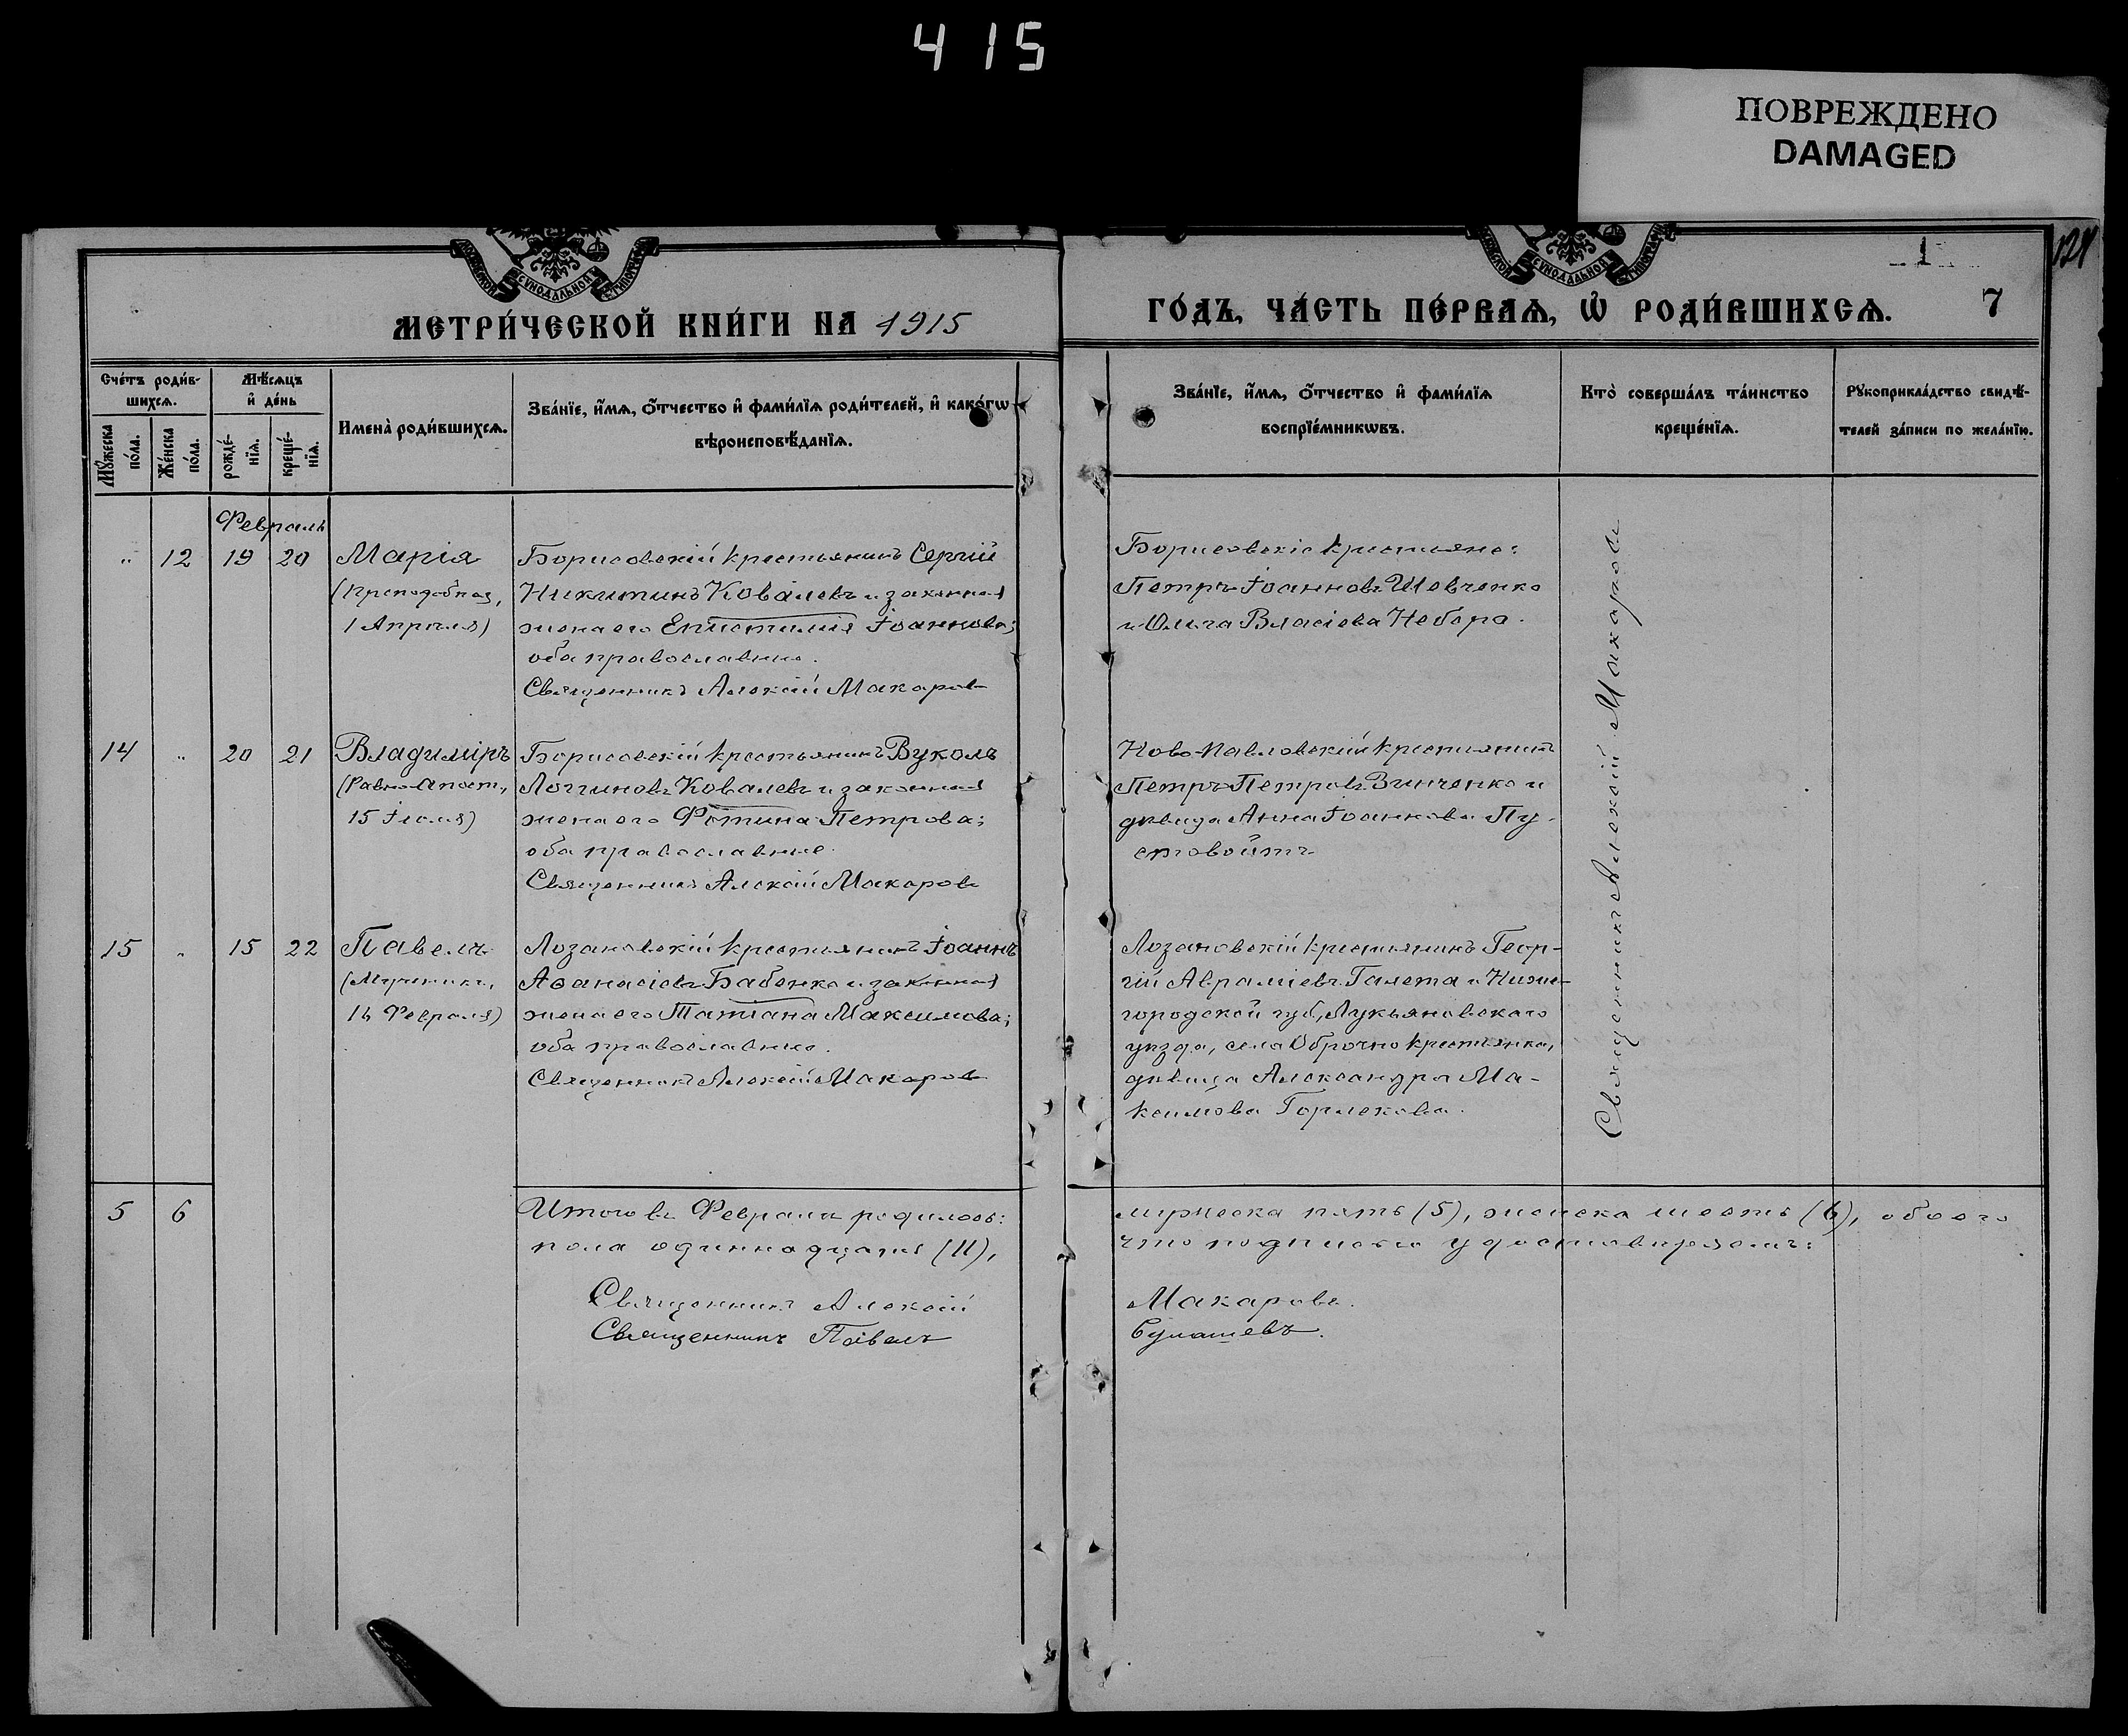 4 15
ПОВРЕЖДЕНО
DAMAGED
124
1
МЕТРИ́ЧЕСКОЙ КНИ́ГИ НА 1915
ГО́ДЪ, ЧА́СТЬ ПЕ́РВАѦ, Ѽ РОДИ́ВШИХСѦ.
7
Сче́тъ роди́в-
шихсѧ.
Мѣ́сѧцъ
и҆ де́нь
Мꙋ́жеска
по́ла.
Же́нска
по́ла.
рожде́-
нїѧ.
креще́-
нїѧ.
Имена̀ роди́вшихсѧ.
Зва́нїе, и҆́мѧ, ѻ҆́тчество и҆ фами́лїѧ роди́телей, и҆ како́гѡ
вѣроисповѣ́данїѧ.
Зва́нїе, и҆́мѧ, ѻ҆́тчество и҆ фами́лїѧ
воспрїе́мникѡвъ.
Кто̀ соверша́лъ та́инство
креще́нїѧ.
Рꙋкоприкла́дство свидѣ́-
телей за́писи по жела́нїю.
Февраль
" 12 19 20 Марія
(Преподобная,
1 Апрѣля)
Борисовскій крестьянинъ Сергій
Никитинъ Ковалевъ и законная
жена его Епистимія Іоаннова;
оба православные.
Священникъ Алексій Макаровъ
Борисовскіе крестьяне:
Петръ Іоанновъ Шевченко
и Ольга Власіева Небора.
14 " 20 21 Владиміръ
(Равно-Апост.,
15 Іюля)
Борисовскій крестьянинъ Вуколъ
Логгиновъ Ковалевъ и законная
жена его Фотина Петрова;
оба православные.
Священникъ Алексій Макаровъ
Ново-Павловскій крестьянинъ
Петръ Петровъ Зинченко и
дѣвица Анна Іоаннова Пу-
стовойтъ
15 " 15 22 Павелъ
(Мученикъ,
16 Февраля)
Лозановскій крестьянинъ Іоаннъ
Аѳанасіевъ Бабенко и законная
жена его Татіана Максимова;
оба православные.
Священникъ Алексій Макаровъ
Лозановскій крестьянинъ Геор-
гій Авраміевъ Галета и Ниже-
городской губ., Лукьяновскаго
уѣзда, села Оброчно крестьянка,
дѣвица Александра Ма-
ксимова Горлекова.
Священникъ Алексій Макаровъ
5 6
Итого въ Февралѣ родилось:
мужеска пять (5), женска шесть (6), обоего
пола одиннадцать (11),
что подписью удостовѣряемъ:
Священникъ Алексій
Макаровъ.
Священникъ Павелъ